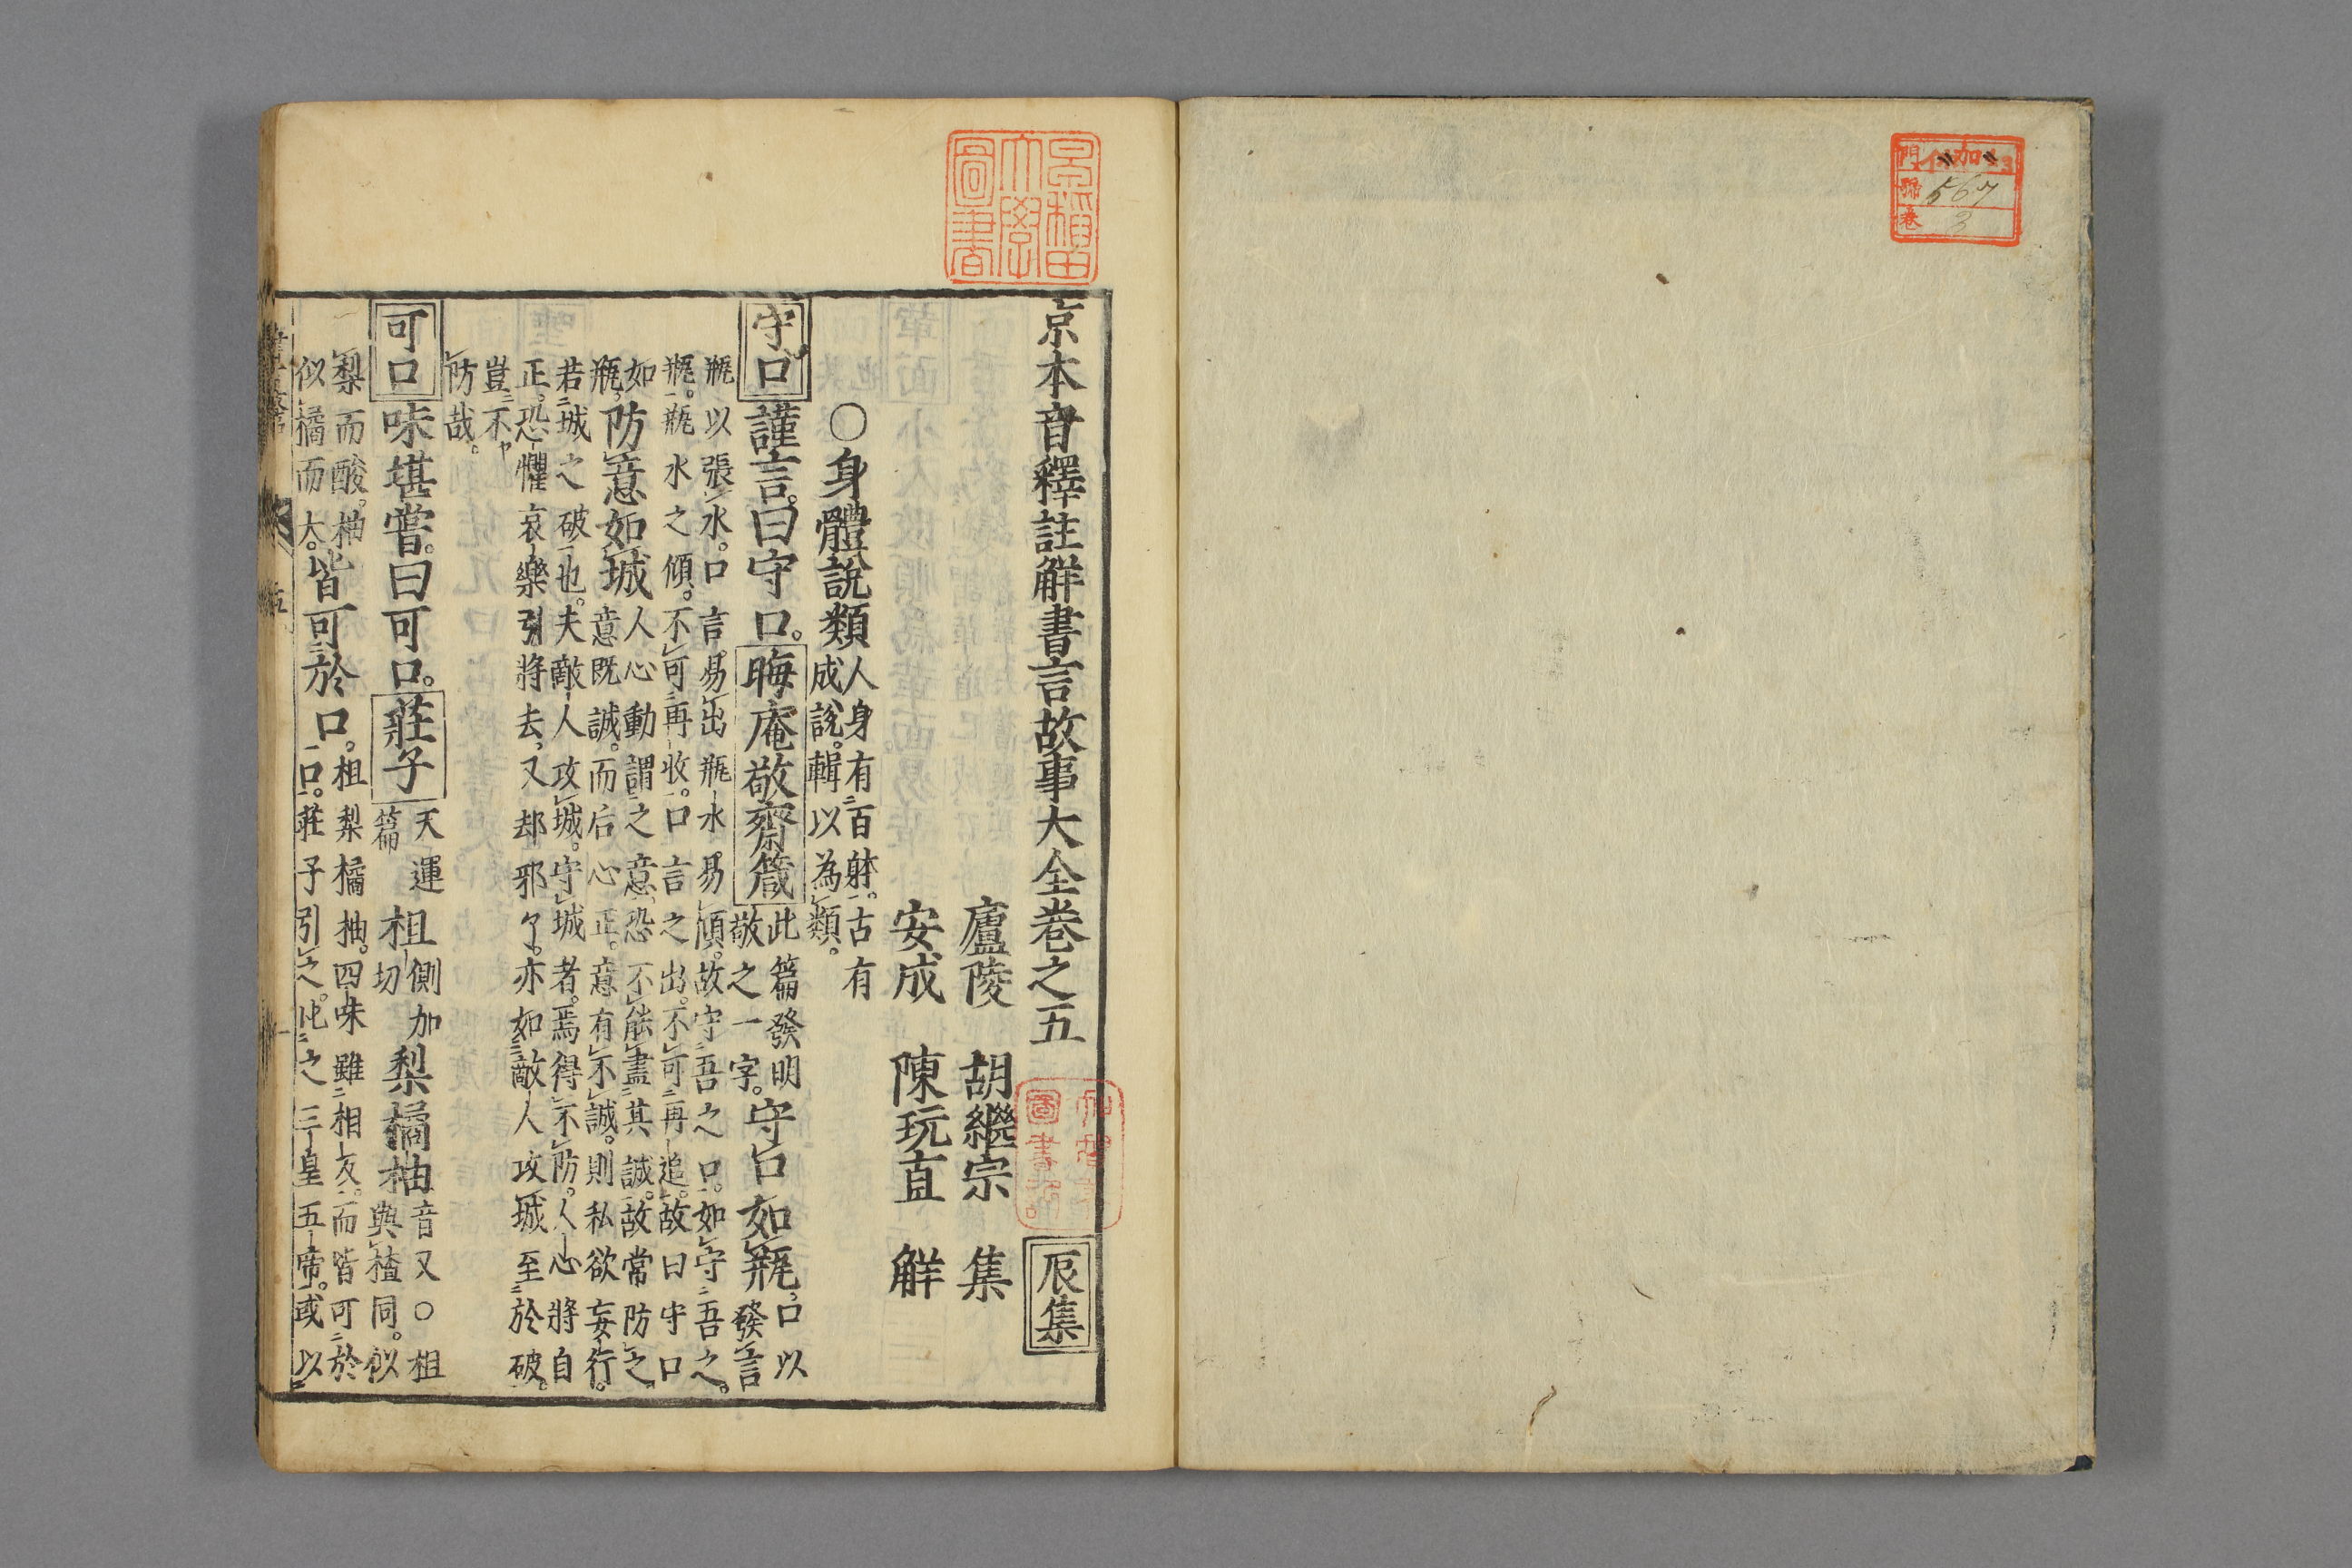 門 加
號 567
卷 3
早稲田大學圖書
京本音釋註觧書言故事大全卷之五 辰集
廬陵 胡繼宗 集
安成 陳玩直 觧
○身體說類 人身有百躰。古有
成說。輯以為類。
守口 謹言。曰守口。 晦庵敬齋箴 此篇發明
敬之一字。 守口如瓶, 口以
發言
瓶以張水。口言易出瓶水。易傾。故守吾之口。如守吾之
瓶。瓶水之傾。不可再收。口言之出。不可再追。故曰守口
如
瓶, 防意如城 人心動謂之意,恐不能盡其誠。故常防之
意既誠。而后心正。意有不誠。則私欲妄行。
若城之破也。夫敵人攻城。守城者。焉得不防。人心將自
正。恐懼哀樂引將去,又却邪了。亦如敵人攻城至於破。
豈不
防哉。
可口 味堪嘗。曰可口。 莊子 天運
篇 柤 側加
切 梨橘柚 音又○柤
與楂同。似
梨而酸。柚
似橘而大。 皆可於口。 柤梨橘柚。四味雖相反。而皆可於
口。莊子引之。比之三皇五帝。或以
五